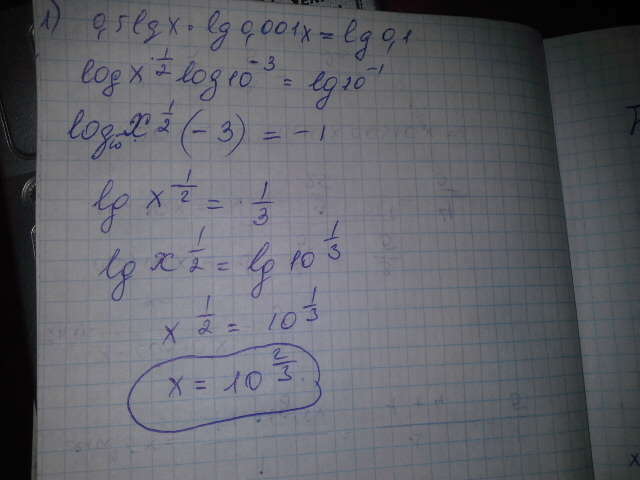 1) 0,5 lg x · lg 0,001x = lg 0,1
log x^1/2 log 10^-3 = lg 10^-1
log₁₀ x^1/2 (-3) = -1
lg x^1/2 = 1/3
lg x^1/2 = lg 10^1/3
x^1/2 = 10^1/3
x = 10^2/3